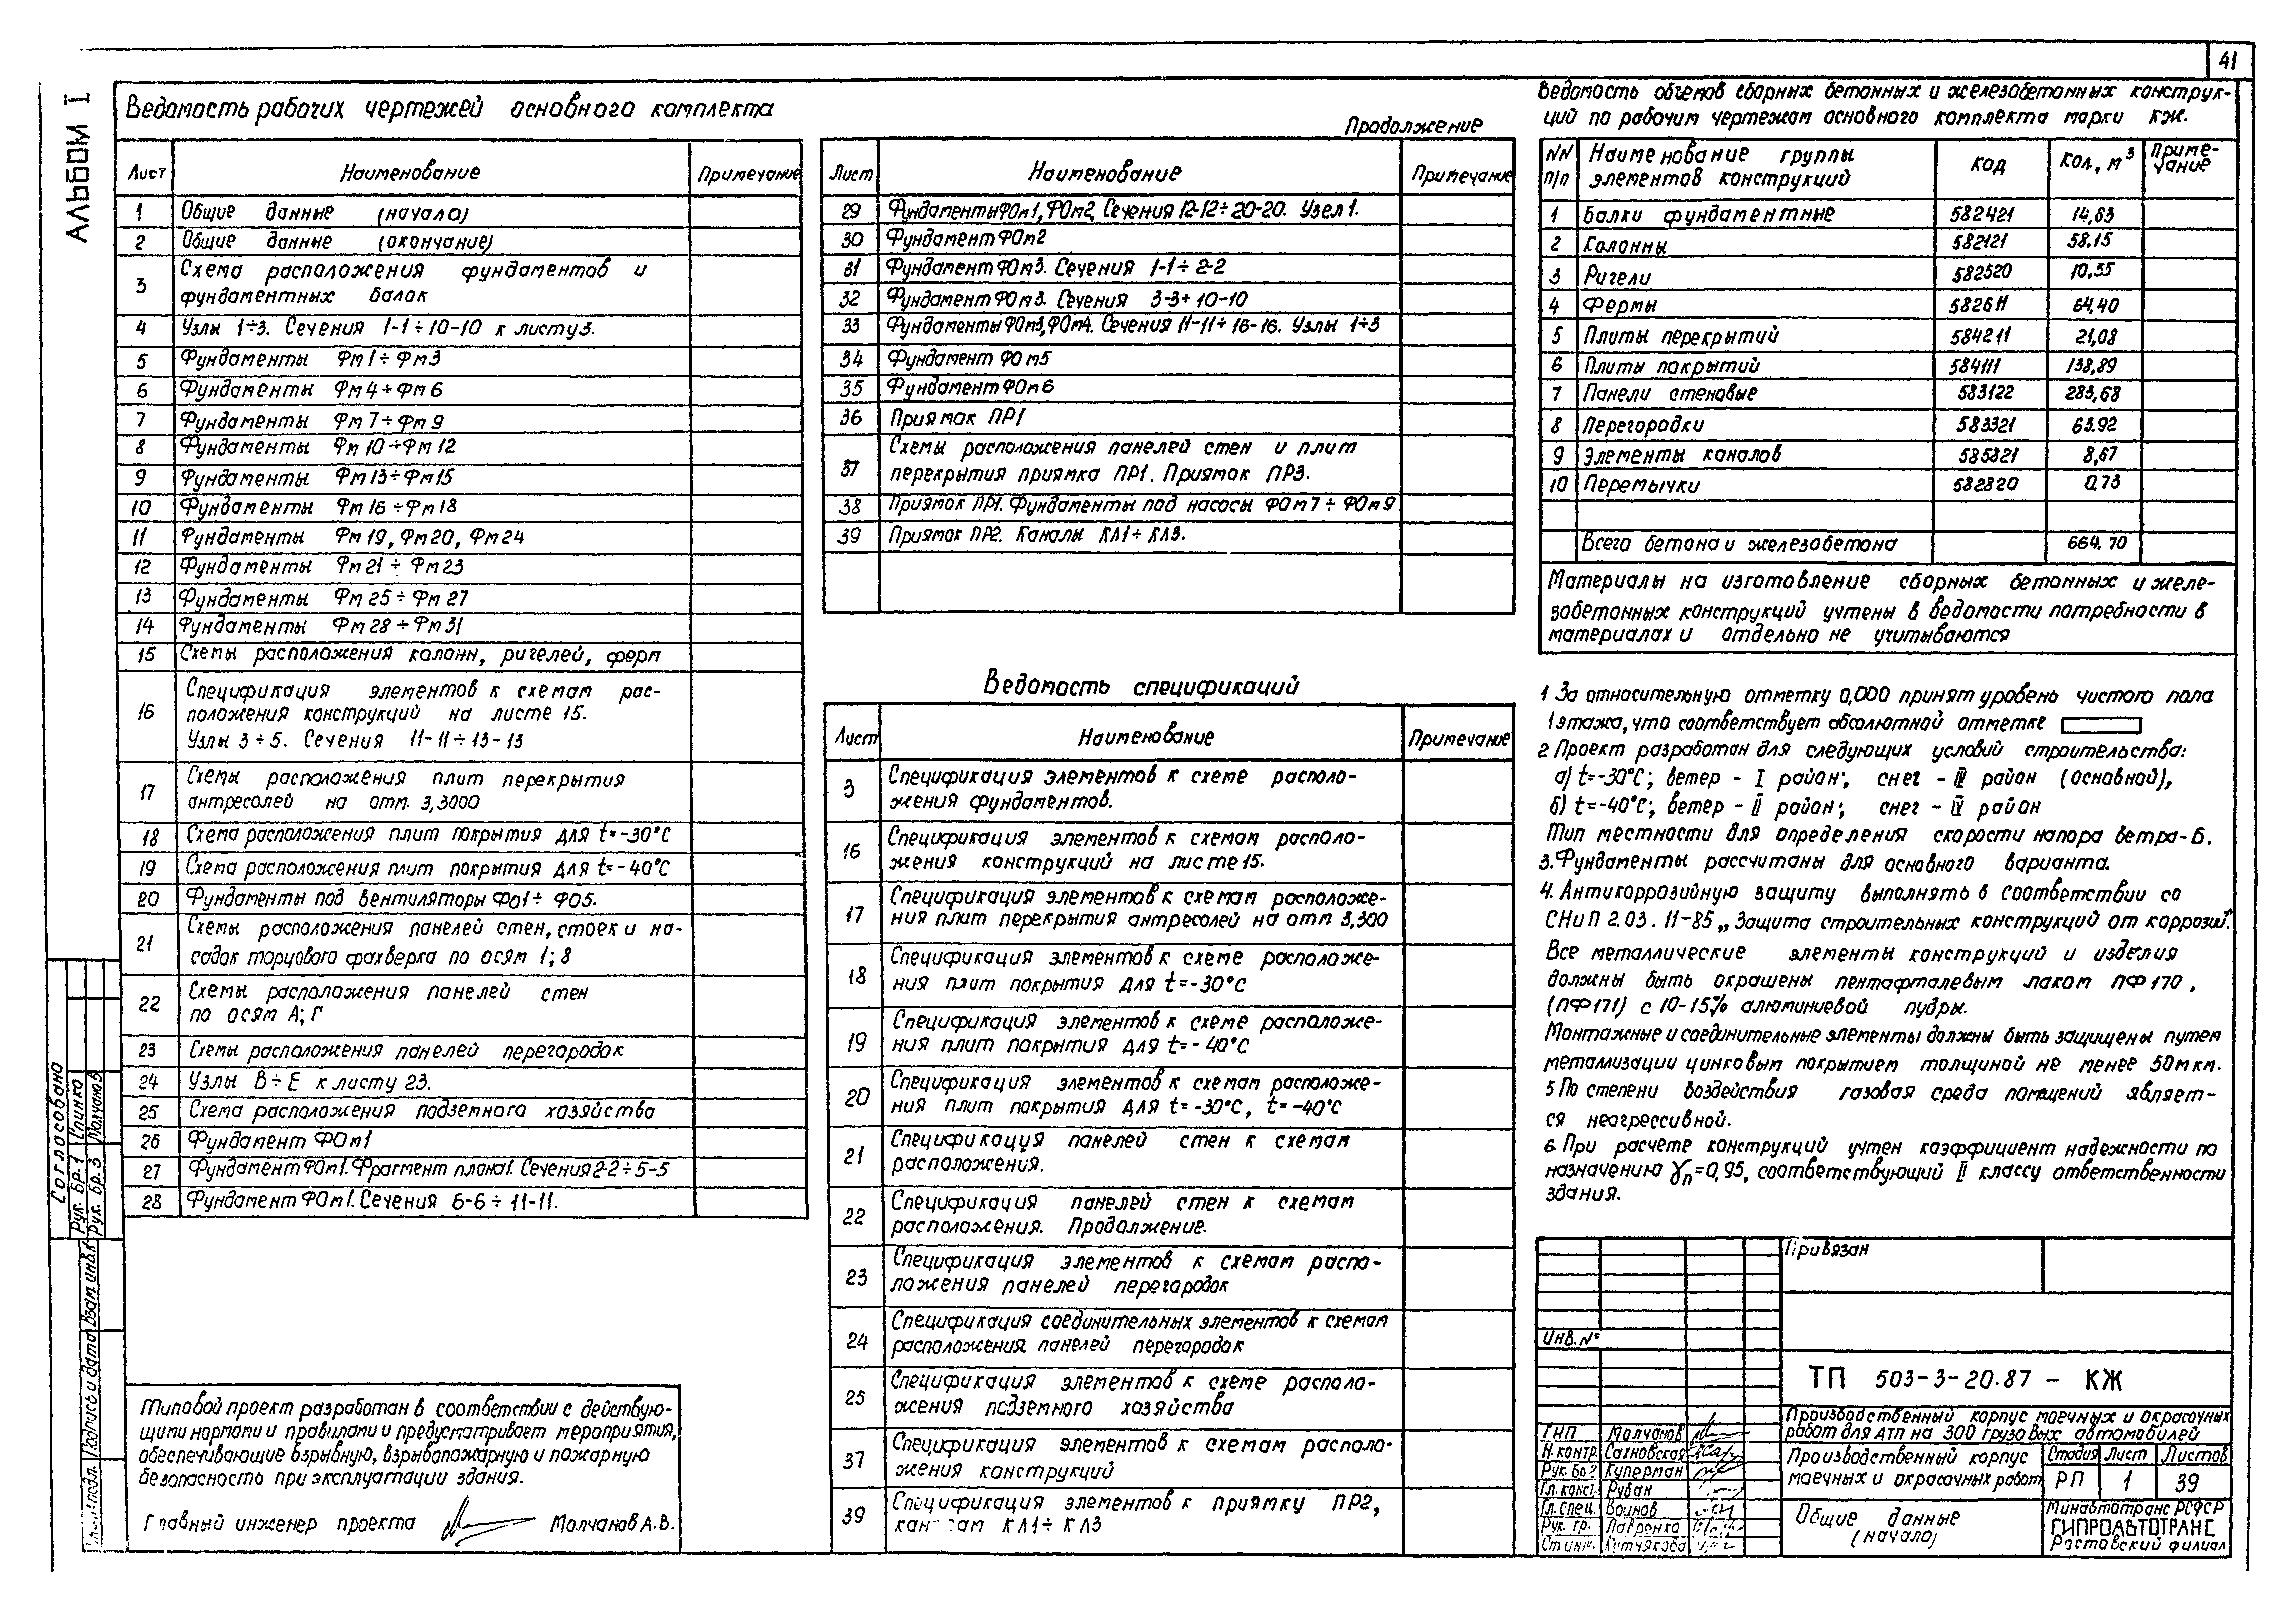 41
АЛЬБОМ I
Ведомость рабочих чертежей основного комплекта
Лист Наименование Примечание
1 Общие данные (начало)
2 Общие данные (окончание)
3 Схема расположения фундаментов и
фундаментных балок
4 Узлы 1÷3. Сечения 1-1÷10-10 к листу 3.
5 Фундаменты Фм1÷Фм3
6 Фундаменты Фм4÷Фм6
7 Фундаменты Фм7÷Фм9
8 Фундаменты Фм10÷Фм12
9 Фундаменты Фм13÷Фм15
10 Фундаменты Фм16÷Фм18
11 Фундаменты Фм19, Фм20, Фм24
12 Фундаменты Фм21÷Фм23
13 Фундаменты Фм25÷Фм27
14 Фундаменты Фм28÷Фм31
15 Схемы расположения колонн, ригелей, ферм
16 Спецификация элементов к схемам рас-
положения конструкций на листе 15.
Узлы 3÷5. Сечения 11-11÷13-13
17 Схемы расположения плит перекрытия
антресолей на отм. 3,3000
18 Схема расположения плит покрытия для t=-30°С
19 Схема расположения плит покрытия для t=-40°С
20 Фундаменты под вентиляторы Фо1÷Фо5.
21 Схемы расположения панелей стен, стоек и на-
садок торцового фахверка по осям 1; 8
22 Схемы расположения панелей стен
по осям А; Г
23 Схемы расположения панелей перегородок
24 Узлы В÷Е к листу 23.
25 Схема расположения подземного хозяйства
26 Фундамент ФОм1
27 Фундамент ФОм1. Фрагмент плана 1. Сечения 2-2÷5-5
28 Фундамент ФОм1. Сечения 6-6÷11-11.
Типовой проект разработан в соответствии с действую-
щими нормами и правилами и предусматривает мероприятия,
обеспечивающие взрывную, взрывопожарную и пожарную
безопасность при эксплуатации здания.
Главный инженер проекта Молчанов А.В.
Продолжение
Лист Наименование Примечание
29 Фундаменты ФОм1, ФОм2, Сечения 12-12÷20-20. Узел 1.
30 Фундамент ФОм2
31 Фундамент ФОм3. Сечения 1-1÷2-2
32 Фундамент ФОм3. Сечения 3-3÷10-10
33 Фундаменты ФОм3, ФОм4. Сечения 11-11÷16-16. Узлы 1÷3
34 Фундамент ФОм5
35 Фундамент ФОм6
36 Приямок ПР1
37 Схемы расположения панелей стен и плит
перекрытия приямка ПР1. Приямок ПР3.
38 Приямок ПР1. Фундаменты под насосы ФОм7÷ФОм9
39 Приямок ПР2. Каналы КЛ1÷КЛ3.
Ведомость спецификаций
Лист Наименование Примечание
3 Спецификация элементов к схеме располо-
жения фундаментов.
16 Спецификация элементов к схемам располо-
жения конструкций на листе 15.
17 Спецификация элементов к схемам расположе-
ния плит перекрытия антресолей на отм 3,300
18 Спецификация элементов к схеме расположе-
ния плит покрытия для t=-30°С
19 Спецификация элементов к схеме расположе-
ния плит покрытия для t=-40°С
20 Спецификация элементов к схемам расположе-
ния плит покрытия для t=-30°С, t=-40°С
21 Спецификация панелей стен к схемам
расположения.
22 Спецификация панелей стен к схемам
расположения. Продолжение.
23 Спецификация элементов к схемам распо-
ложения панелей перегородок
24 Спецификация соединительных элементов к схемам
расположения панелей перегородок
25 Спецификация элементов к схеме располо-
жения подземного хозяйства
37 Спецификация элементов к схемам располо-
жения конструкций
39 Спецификация элементов к приямку ПР2,
КЛ1÷КЛ3
Ведомость объемов сборных бетонных и железобетонных конструк-
ций по рабочим чертежам основного комплекта марки КЖ.
NN п/п Наименование группы элементов конструкций код кол., м³ Приме-чание
1 Балки фундаментные 582421 14,63
2 Колонны 582121 58,15
3 Ригели 582520 10,55
4 Фермы 582611 64,40
5 Плиты перекрытий 584211 21,08
6 Плиты покрытий 584111 138,89
7 Панели стеновые 583122 283,68
8 Перегородки 583321 63.92
9 Элементы каналов 585821 8,67
10 Перемычки 582820 0,73
Всего бетона и железобетона 664.70
Материалы на изготовление сборных бетонных и желе-
зобетонных конструкций учтены в ведомости потребности в
материалах и отдельно не учитываются
1 За относительную отметку 0,000 принят уровень чистого пола
1 этажа, что соответствует абсолютной отметке
2 Проект разработан для следующих условий строительства:
а) t=-30°С; ветер - I район; снег - III район (основной),
б) t=-40°С; ветер - II район; снег - IV район
Тип местности для определения скорости напора ветра-Б.
3. Фундаменты рассчитаны для основного варианта.
4. Антикоррозийную защиту выполнять в соответствии со
СНиП 2.03.11-85 „Защита строительных конструкций от коррозий".
Все металлические элементы конструкций и изделия
должны быть окрашены пентафталевым лаком ПФ170,
(ПФ171) с 10-15% алюминиевой пудры.
Монтажные и соединительные элементы должны быть защищены путем
металлизации цинковым покрытием толщиной не менее 50мкм.
5 По степени воздействия газовая среда помещений являет-
ся неагрессивной.
6. При расчете конструкций учтен коэффициент надежности по
назначению γn=0,95, соответствующий II классу ответственности
здания.
Привязан
Инв. №
ТП 503-3-20.87 - КЖ
Производственный корпус моечных и окрасочных
работ для АТП на 300 грузовых автомобилей
ГИП Молчанов
Н.контр. Сахновская
Рук. бр 2 Куперман
Гл. конст. Рубан
Гл. спец. Воинов
Рук. гр. Лавренко
Ст. инж.
Производственный корпус
моечных и окрасочных работ
Стадия Лист Листов
РП 1 39
Общие данные
(начало)
Минавтотранс РСФСР
ГИПРОАВТОТРАНС
Ростовский филиал
Согласовано
Рук. бр. 1 Спинко
Рук. бр. 3
Взам. инв. №
Подпись и дата
подл.